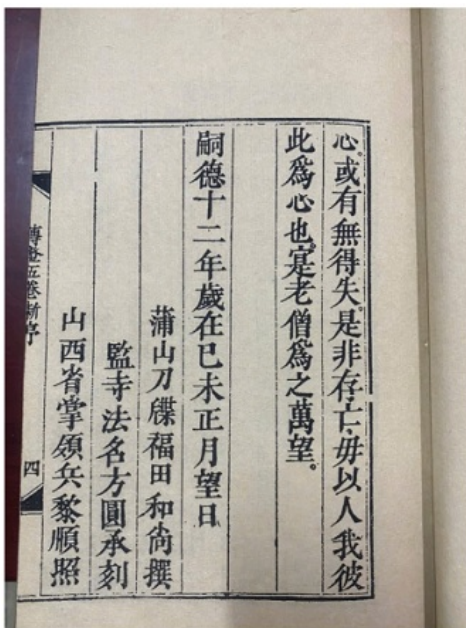 心。或有無得失。是非存亡。毋以人我彼
此爲心也。寔老僧爲之萬望。
嗣德十二年歲在己未正月望日
蒲山刀牒福田和尚撰
監寺法名方圓承刻
山西省掌領兵黎順照
傳燈五卷新序
四